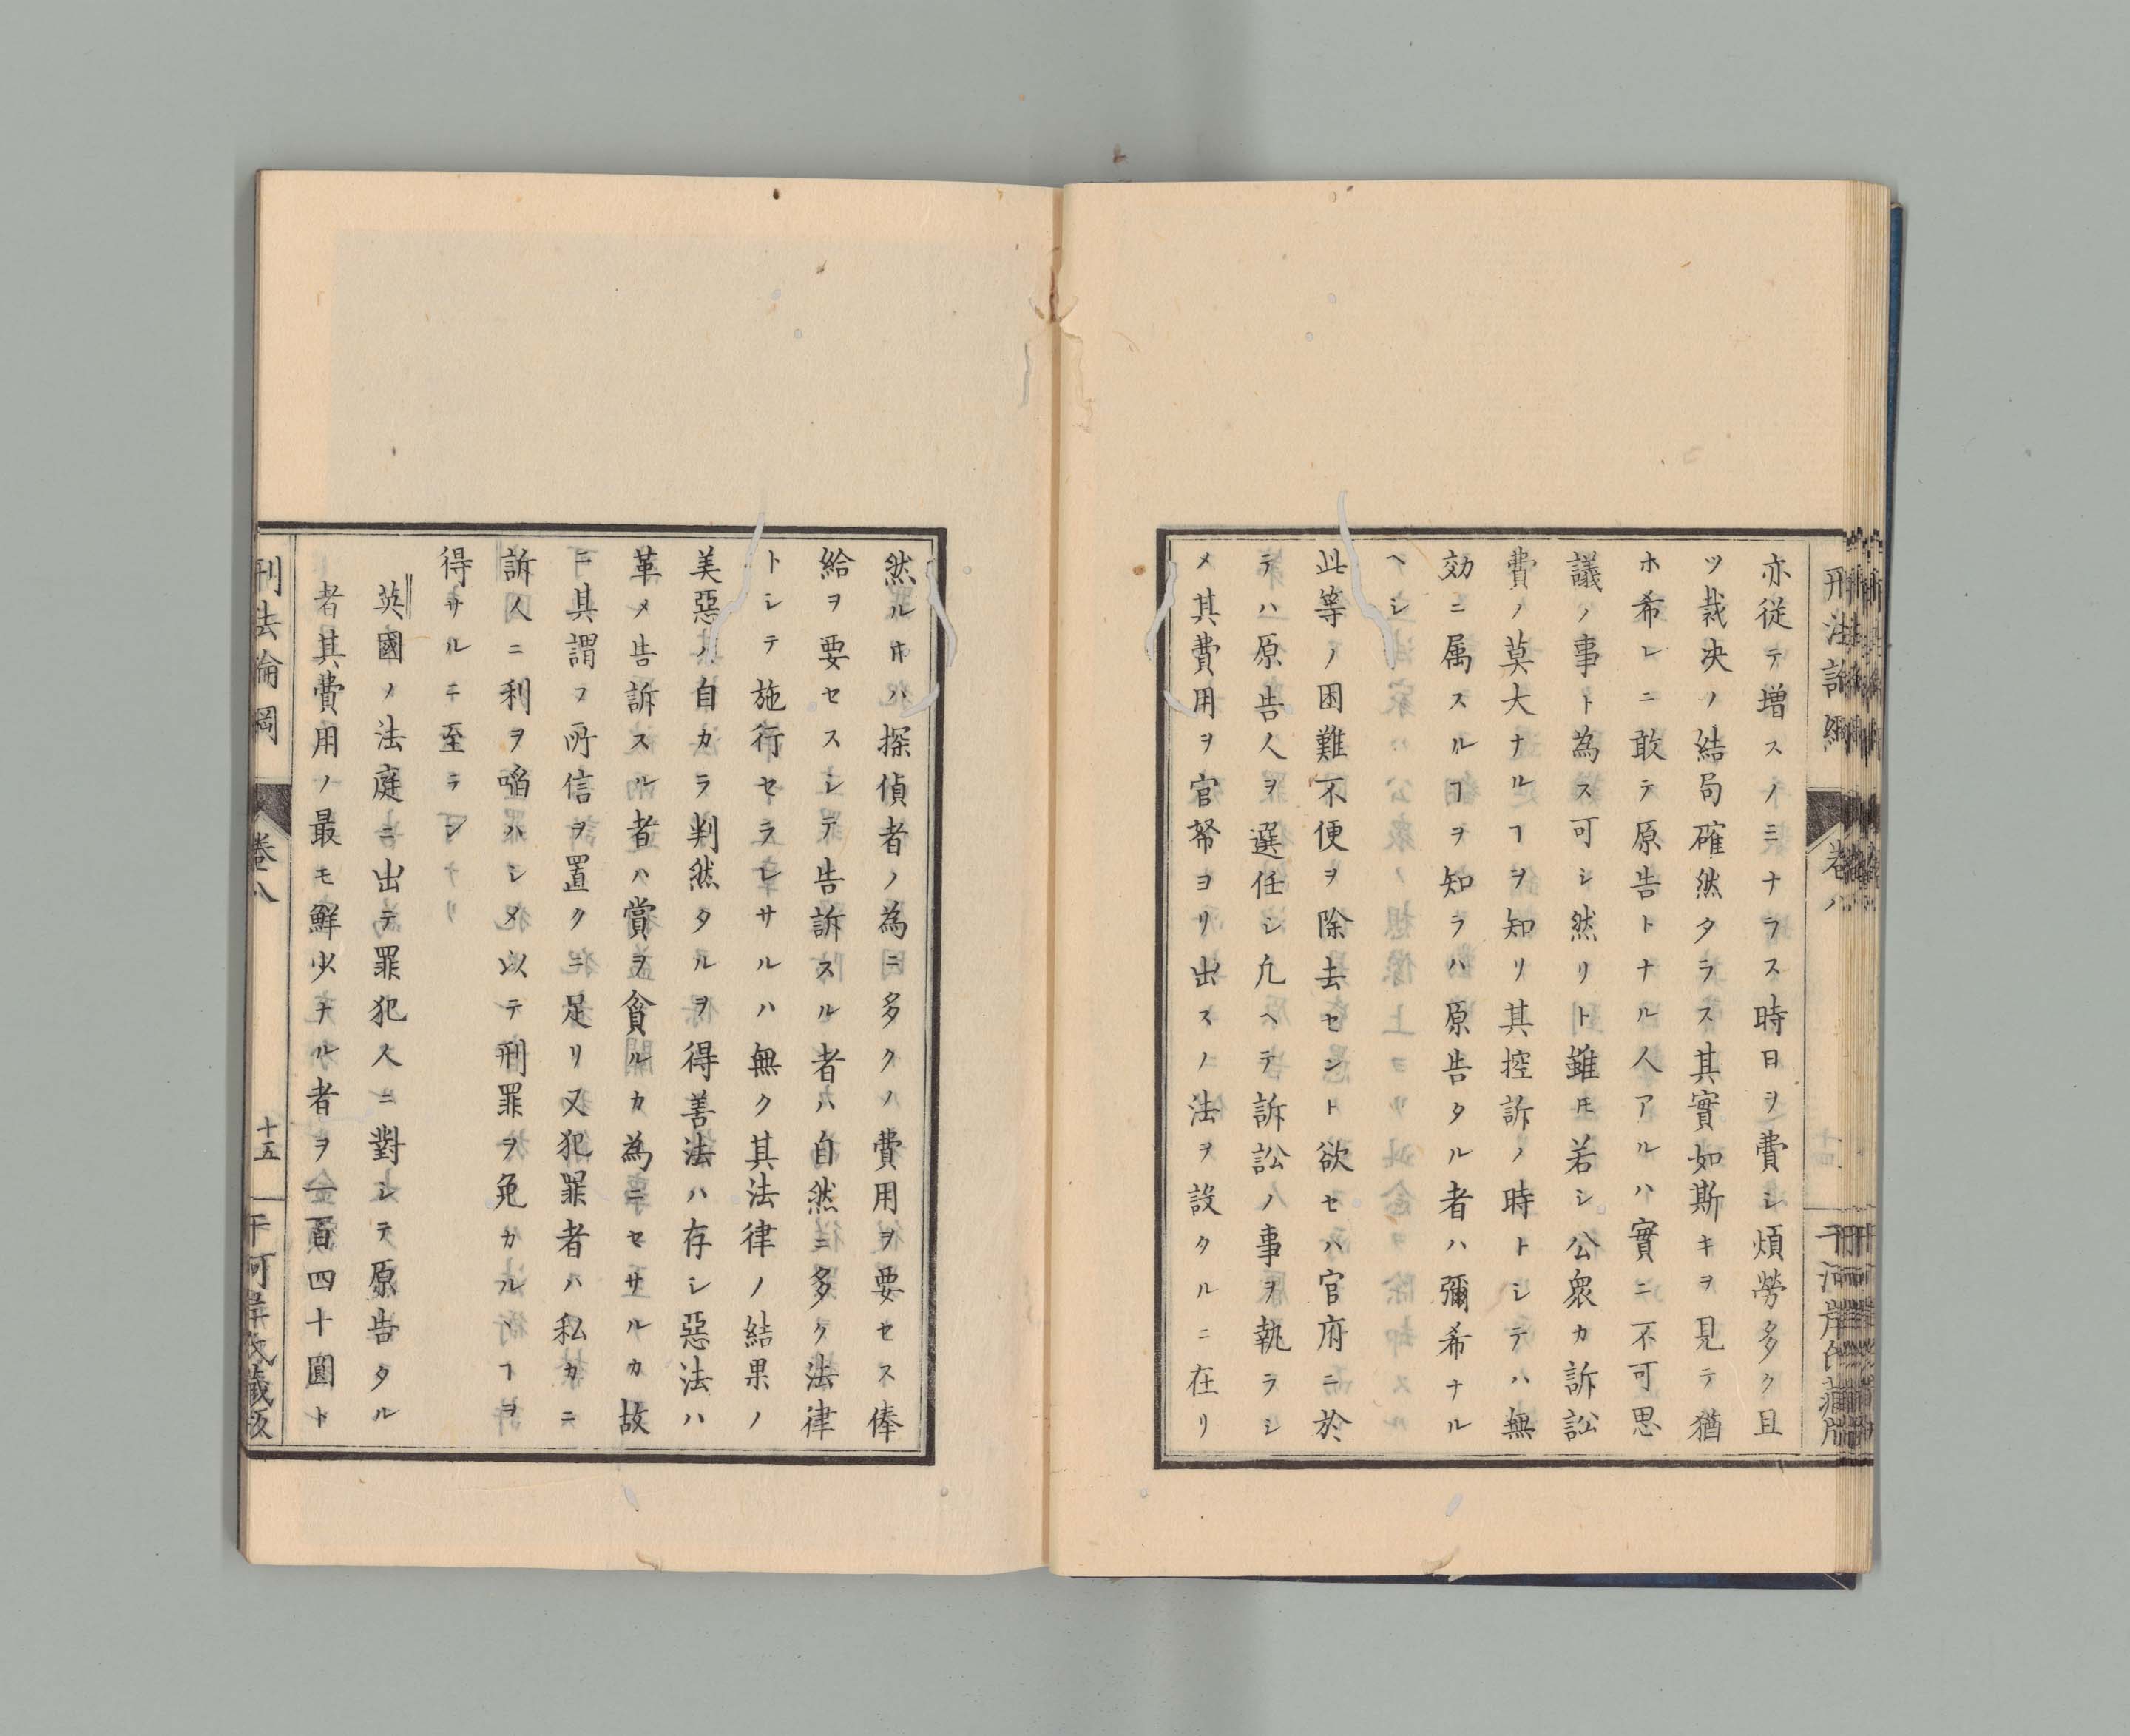 亦従テ増スノミナラス時日ヲ費シ煩勞多ク且
ツ裁决ノ結局確然タラス其實如斯キヲ見テ猶
ホ希レニ敢テ原告トナル人アルハ實ニ不可思
議ノ事ト為ス可シ然リト雖𪜈若シ公衆カ訴訟
費ノ莫大ナルヿヲ知リ其控訴ノ時トシテハ無
効ニ属スルヿヲ知ラハ原告タル者ハ彌希ナル
ヘシ
此等ノ困難不便ヲ除去セシト欲セハ官府ニ於
テハ原告人ヲ選任シ凢ヘテ訴訟ノ事ヲ執ラシ
メ其費用ヲ官帑ヨリ出スノ法ヲ設クルニ在リ
然ル𬼂ハ探偵者ノ為ニ多クノ費用ヲ要セス俸
給ヲ要セスシテ告訴スル者ハ自然ニ多ク法律
トシテ施行セラレサルハ無ク其法律ノ結果ノ
美惡ハ自カラ判然タルヲ得善法ハ存シ惡法ハ
革メ告訴スル者ハ賞ヲ貪ルカ為ニセサルカ故
ニ其謂フ所信ヲ置クニ足リ又犯罪者ハ私カニ
訴人ニ利ヲ啗ハシメ以テ刑罪ヲ免カルヽヿヲ
得サルニ至ラン
英國ノ法庭ニ出テ罪犯人ニ對シテ原告タル
者其費用ノ最モ鮮少ナル者ヲ一百四十圓ト
刑法論綱
卷八
十五
干河岸氏藏版